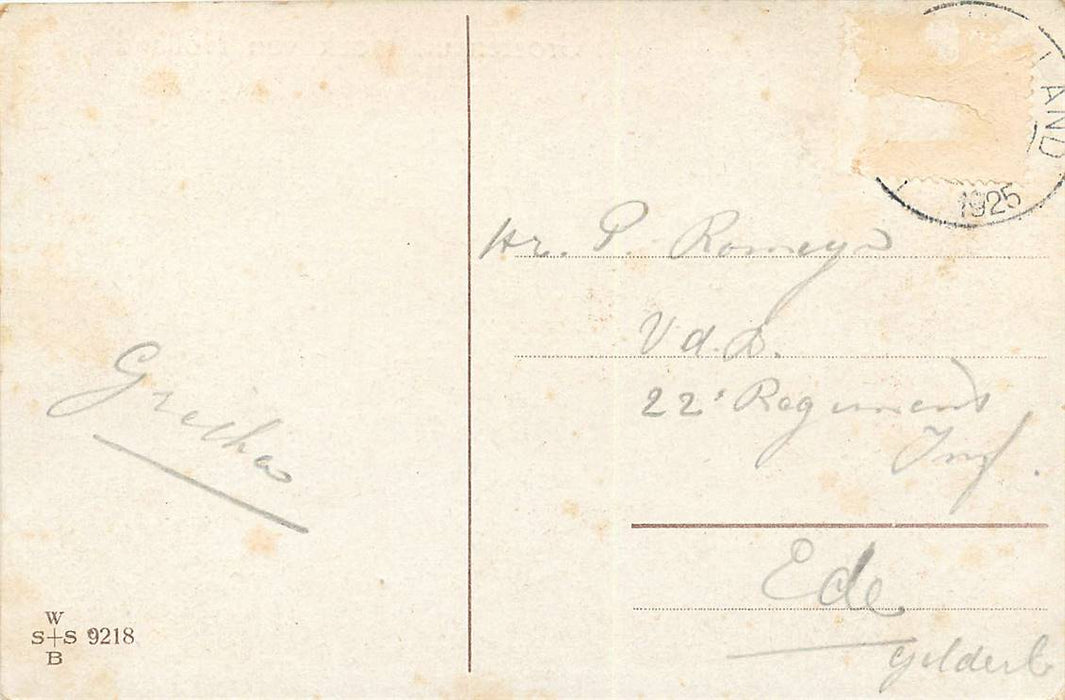 Gretha
W
S+S 9218
B
AND
1925
Hr. P. Romeyn
V d. D.
22e Regiment
Inf.
Ede
Gelderl